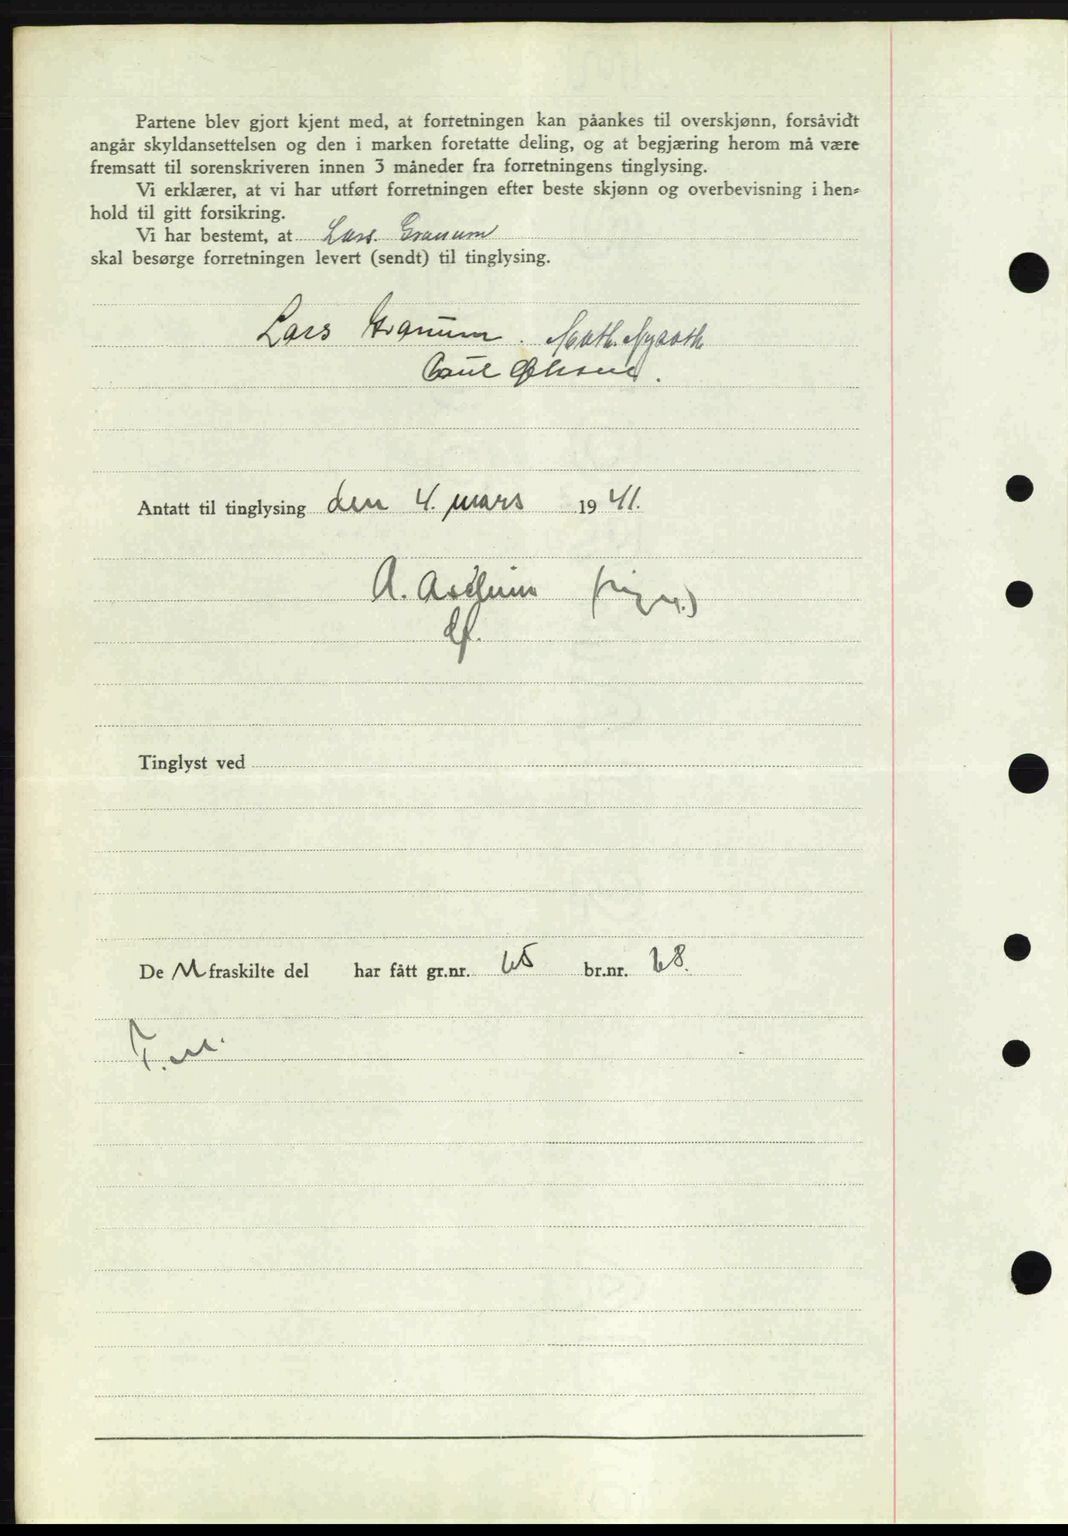 Partene blev gjort kjent med, at forretningen kan påankes til overskjønn, forsåvidt
angår skyldansettelsen og den i marken foretatte deling, og at begjæring herom må være
fremsatt til sorenskriveren innen 3 måneder fra forretningens tinglysing.
Vi erklærer, at vi har utført forretningen efter beste skjønn og overbevisning i hen-
hold til gitt forsikring.
Vi har bestemt, at Lars Granum
skal besørge forretningen levert (sendt) til tinglysing.
Lars Granum. Math.
Paul
Antatt til tinglysing den 4. mars 1941.
A.
Tinglyst ved
De fraskilte del har fått gr.nr. 65 br.nr. 68.